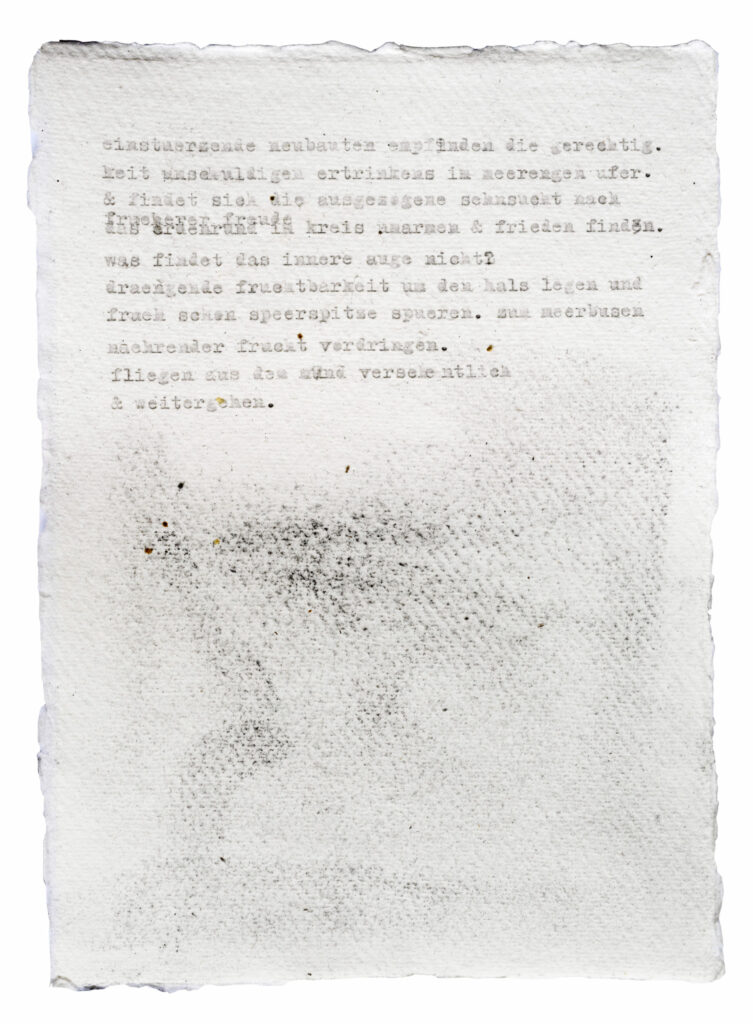 einstuerzende neubauten empfinden die gerechtig.
keit unschuldigen ertrinkens in meerengen ufer.
& findet sich die ausgezogene sehnsucht nach
frueherer freude
das erdenrund im kreis umarmen & frieden finden.
was findet das innere auge nicht?
draengende fruchtbarkeit um den hals legen und
frueh schon speerspitze spueren. zum meerbusen
naehrender frucht vordringen.
fliegen aus dem mund versehentlich
& weitergehen.